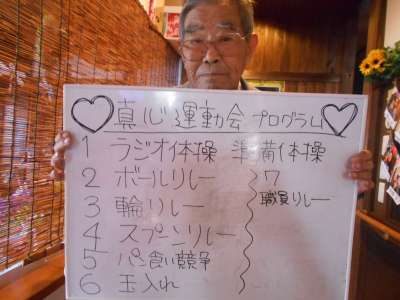 真心運動会プログラム
1 ラジオ体操 準備体操
2 ボールリレー
3 輪リレー
4 スプーンリレー
5 パン食い競争
6 玉入れ
7
職員リレー